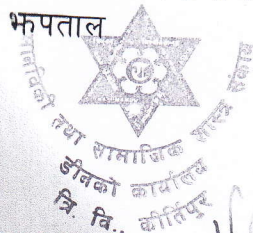 झपताल
मानविकी तथा सामाजिक शास्त्र संकाय
डीनको कार्यालय
त्रि. वि., कीर्तिपुर